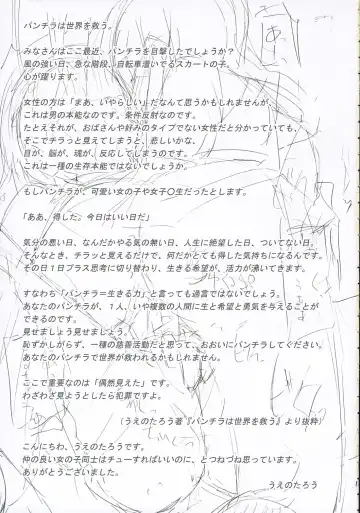 パンチラは世界を救う。
みなさんはここ最近、パンチラを目撃したでしょうか？
風の強い日、急な階段、自転車漕いでるスカートの子。
心が躍ります。
女性の方は「まあ、いやらしい」だなんて思うかもしれませんが、
これは男の本能なのです。条件反射なのです。
たとえそれが、おばさんや好みのタイプでない女性だと分かっていても、
そこでチラっと見えてしまうと、悲しいかな、
目が、脳が、魂が、反応してしまうのです。
これは一種の生存本能ではないでしょうか。
もしパンチラが、可愛い女の子や女子〇生だったとします。
「ああ、得した。今日はいい日だ」
気分の悪い日、なんだかやる気の無い日、人生に絶望した日、ついてない日。
そんなとき、チラッと見えるだけで、何かとても得した気持ちになるんです。
その日１日プラス思考に切り替わり、生きる希望が、活力が湧いてきます。
すなわち「パンチラ＝生きる力」と言っても過言ではないでしょう。
あなたのパンチラが、１人、いや複数の人間に生と希望と勇気を与えることが
できるのです。
見せましょう。見せましょう。
恥ずかしがらず、一種の慈善活動だと思って、おおいにパンチラしてください。
あなたのパンチラで世界が救われるかもしれません。
ここで重要なのは「偶然見えた」です。
わざわざ見ようとしたら犯罪ですよ。
（うえのたろう著『パンチラは世界を救う』より抜粋）
こんにちわ、うえのたろうです。
仲の良い女の子同士はチューすればいいのに、とつねづね思っています。
ありがとうございました。
うえのたろう